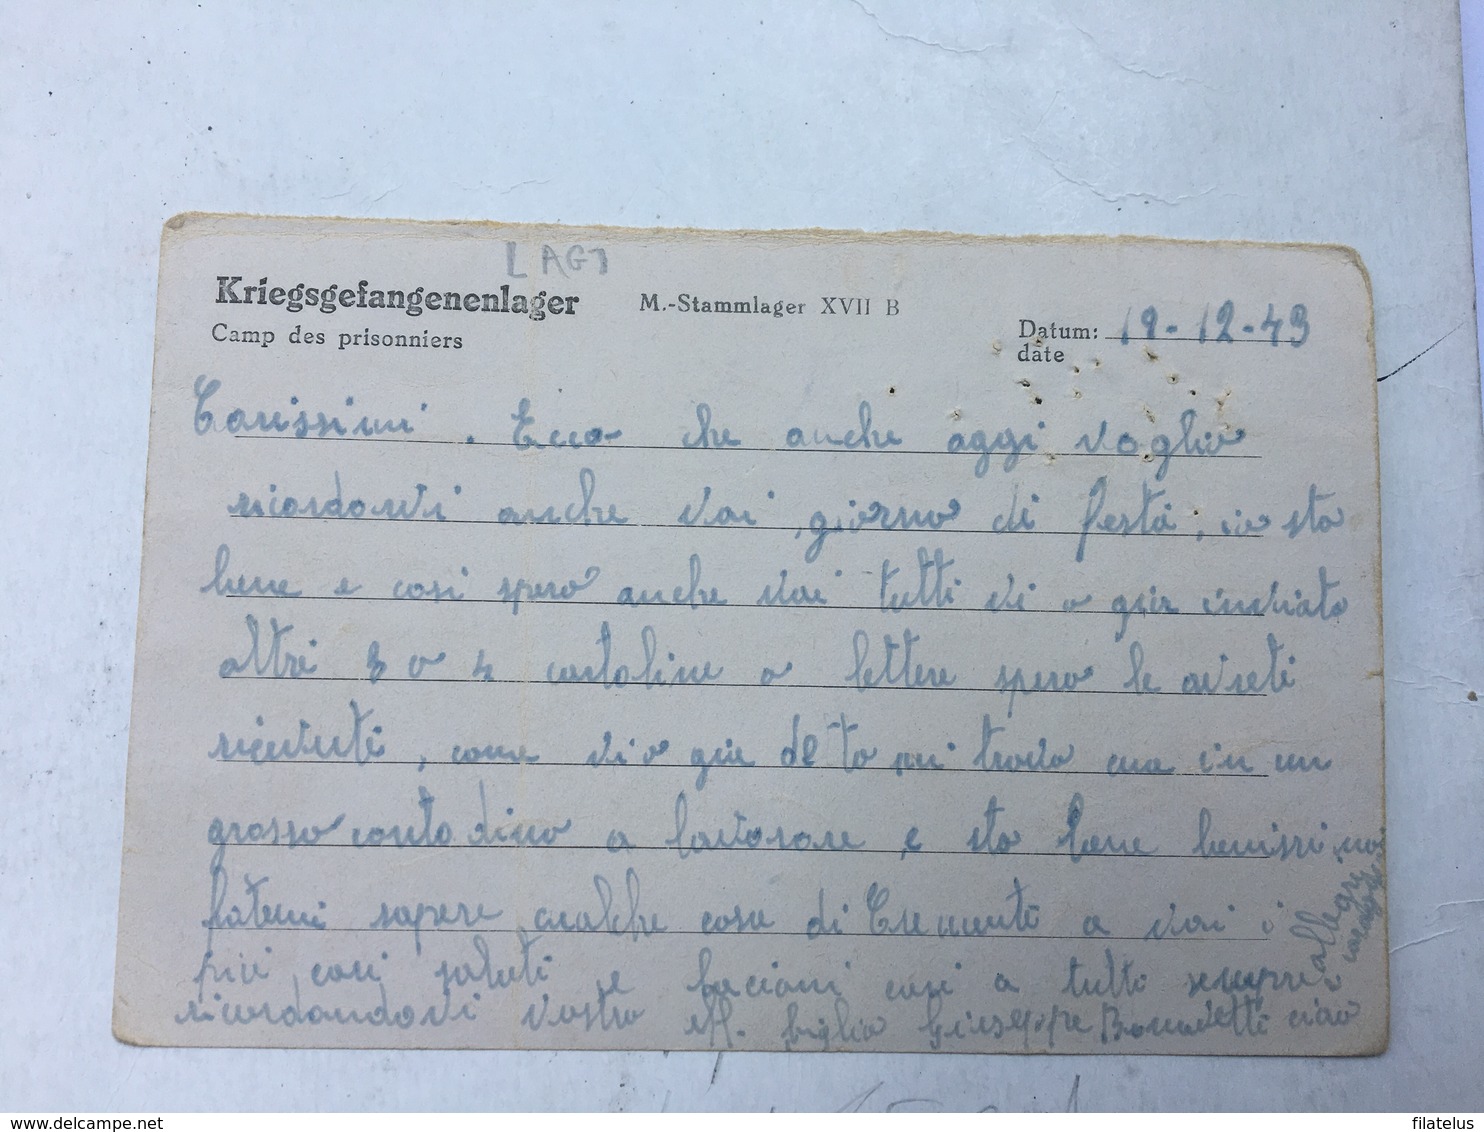 LAG7
Kriegsgefangenenlager M.-Stammlager XVII B
Camp des prisonniers
Datum: 19-12-43
date
Carissimi. Ecco che anche oggi voglio
ricordarvi anche voi, giorno di festa, io sto
bene e cosi spero anche voi tutti vi o gia inviato
altri 3 o 4 cartoline o lettere spero le avreti
ricevuti, come vi o gia deto mi trovo cua in un
grosso contadino a lavorare e sto bene benissimo
fatemi sapere cualche cosa di Clementi a voi i
piu cari saluti e baciani cari a tutti sempre
ricordandovi vostro aff. figlio Giuseppe Benedetti ciao
allegri
filatelus